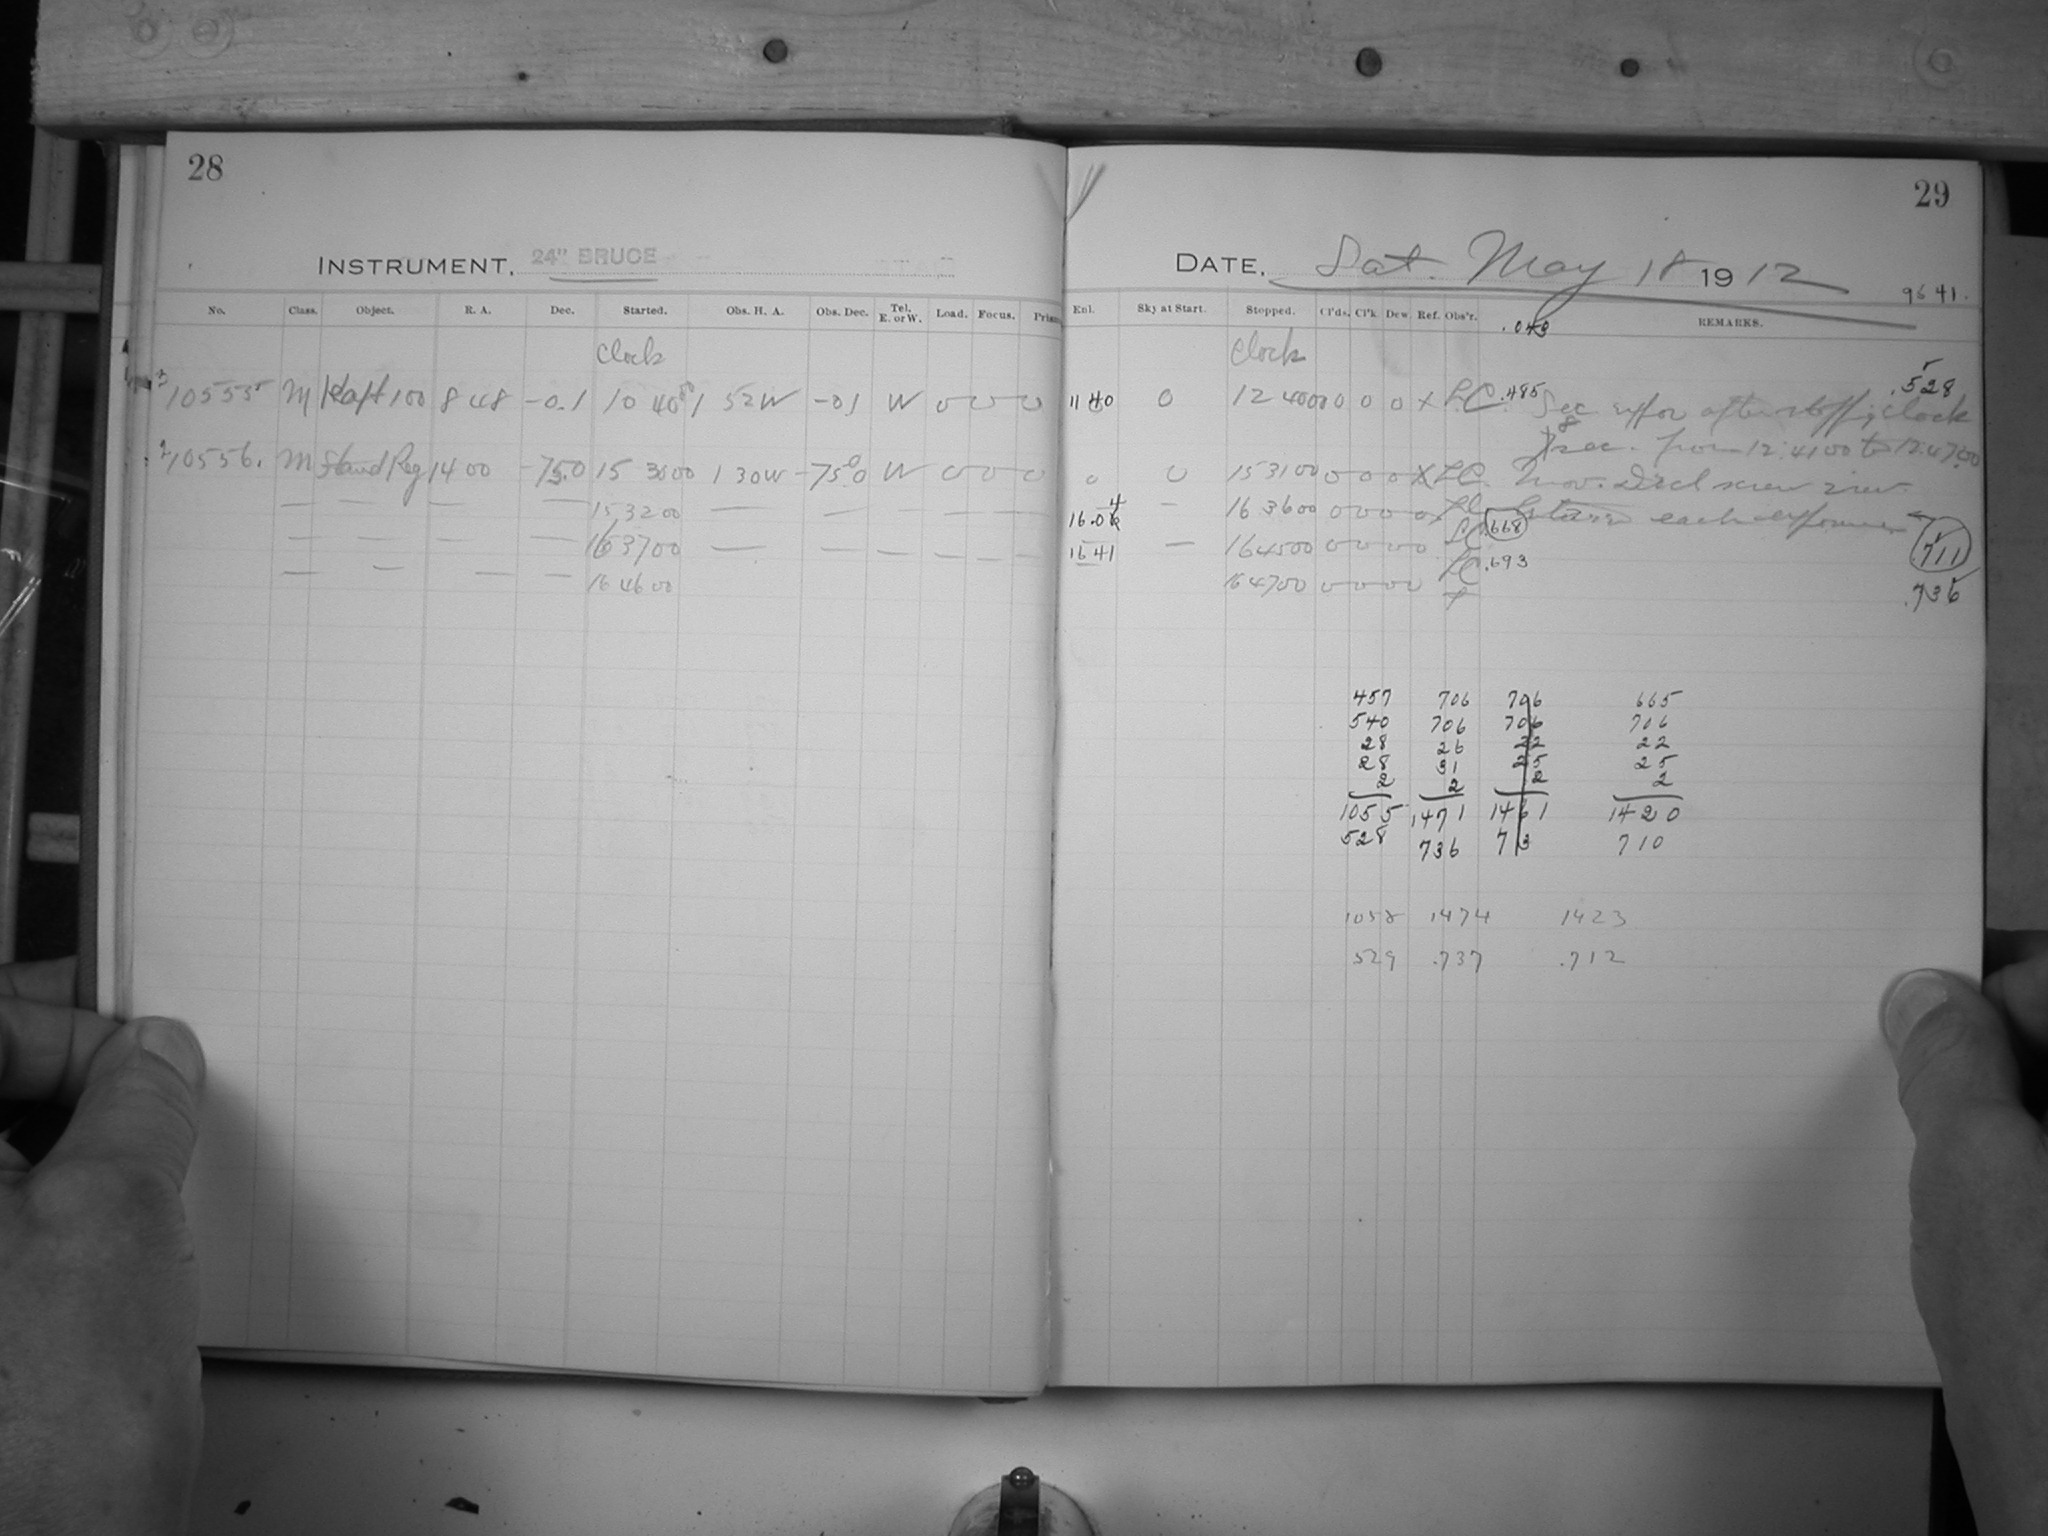 28
INSTRUMENT. 24" BRUCE
No. Class. Object. R. A. Dec. Started. Obs. H. A. Obs. Dec. Tel. E. or W. Load. Focus. Prism
Clock
10555 M Kapt 100 8 48 -0.1 10 40 1 52 W -01 W 0 0 0
10556. M Stand Reg 14 00 -75.0 15 3000 1 30 W -75 0 W 0 0 0
— — — — 15 32 00 — — — — — —
— — — — 16 37 00 — — — — — —
— — — — 16 46 00
29
DATE. Sat. May 18 1912
9641.
Enl. Sky at Start. Stopped. Cl'ds. Cl'k. Dew. Ref. Obs'r. REMARKS.
.043
Clock
.528
11 40 0 12 4000 0 0 0 X LC .485 Sec expos after stopping clock
8 sec. from 12.41 00 to 12.47.00
0 0 15 31 00 0 0 0 X LC. Mov. Decl screw 2 rev.
16.04 — 16 36 00 0 0 0 0 .668 each exposure
16 41 — 16 45 00 0 0 0 0 LC .693 .711
16 47 00 0 0 0 0 .736
457 706 706 665
540 706 706 706
28 26 22 22
28 31 25 25
2 2 2 2
1055 1471 1461 1420
528 736 73 710
1058 1474 1423
529 .737 .712